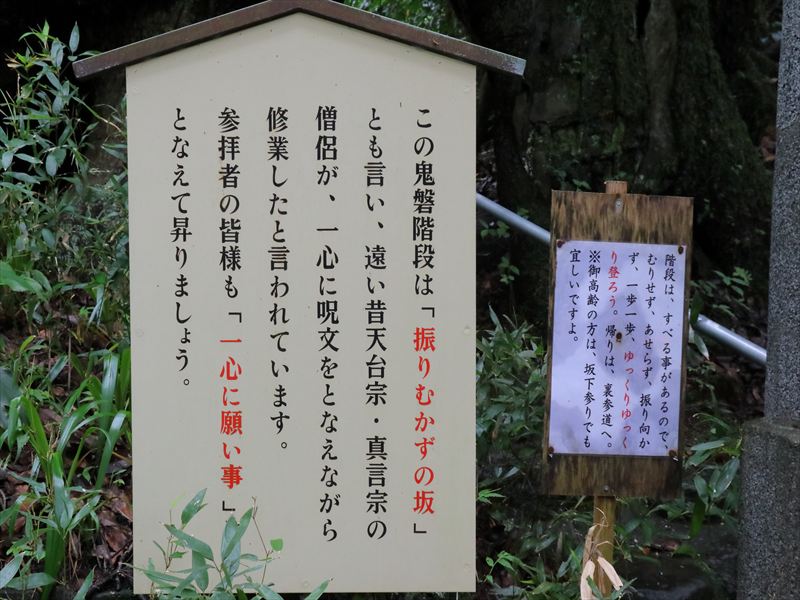 この鬼磐階段は「振りむかずの坂」
とも言い、遠い昔天台宗・真言宗の
僧侶が、一心に呪文をとなえながら
修業したと言われています。
参拝者の皆様も「一心に願い事」
となえて昇りましょう。
階段は、すべる事があるので、
むりせず、あせらず、振り向か
ず、一歩一歩、ゆっくりゆっく
り登ろう。帰りは、裏参道へ。
※御高齢の方は、坂下参りでも
宜しいですよ。